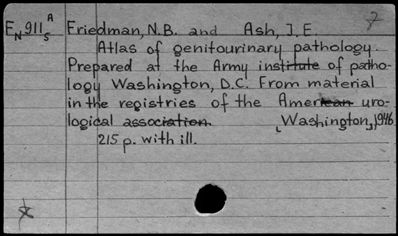 EN911SA Friedman, N.B. and Ash, J.E.
Atlas of genitourinary pathology.
Prepared at the Army institute of patho-
logy Washington, D.C. From material
in the registries of the American uro-
logical association. Washington, 1946
215 p. with ill.